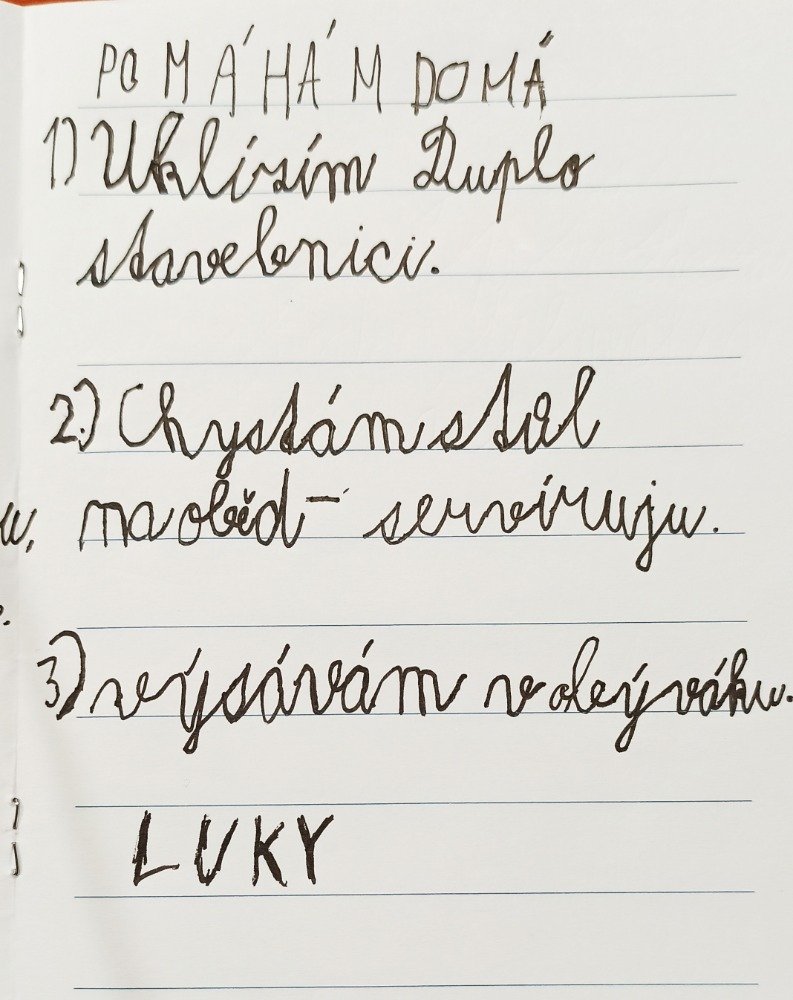 POMÁHÁM DOMÁ
1) Uklízím Duplo
stavebnici.
2.) Chystám stůl
na oběd - servíruju.
3) výsávám v obýváku.
LUKY